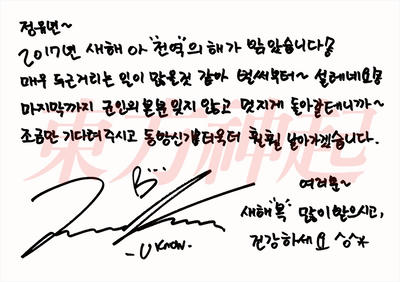 정유년~
2017년 새해 아 "전역"의 해가 밝았습니다!
매우 두근거리는 일이 많을것 같아 벌써부터~ 설레네요!
마지막까지 군인의 본분 잊지 않고 멋지게 돌아갈테니까~
조금만 기다려주시고 동방신기를 더욱더 훨훨 날아가겠습니다.
東方神起
B...
-U KNOW-
여러분~
새해"복" 많이 받으시고,
건강하세요 ^^*